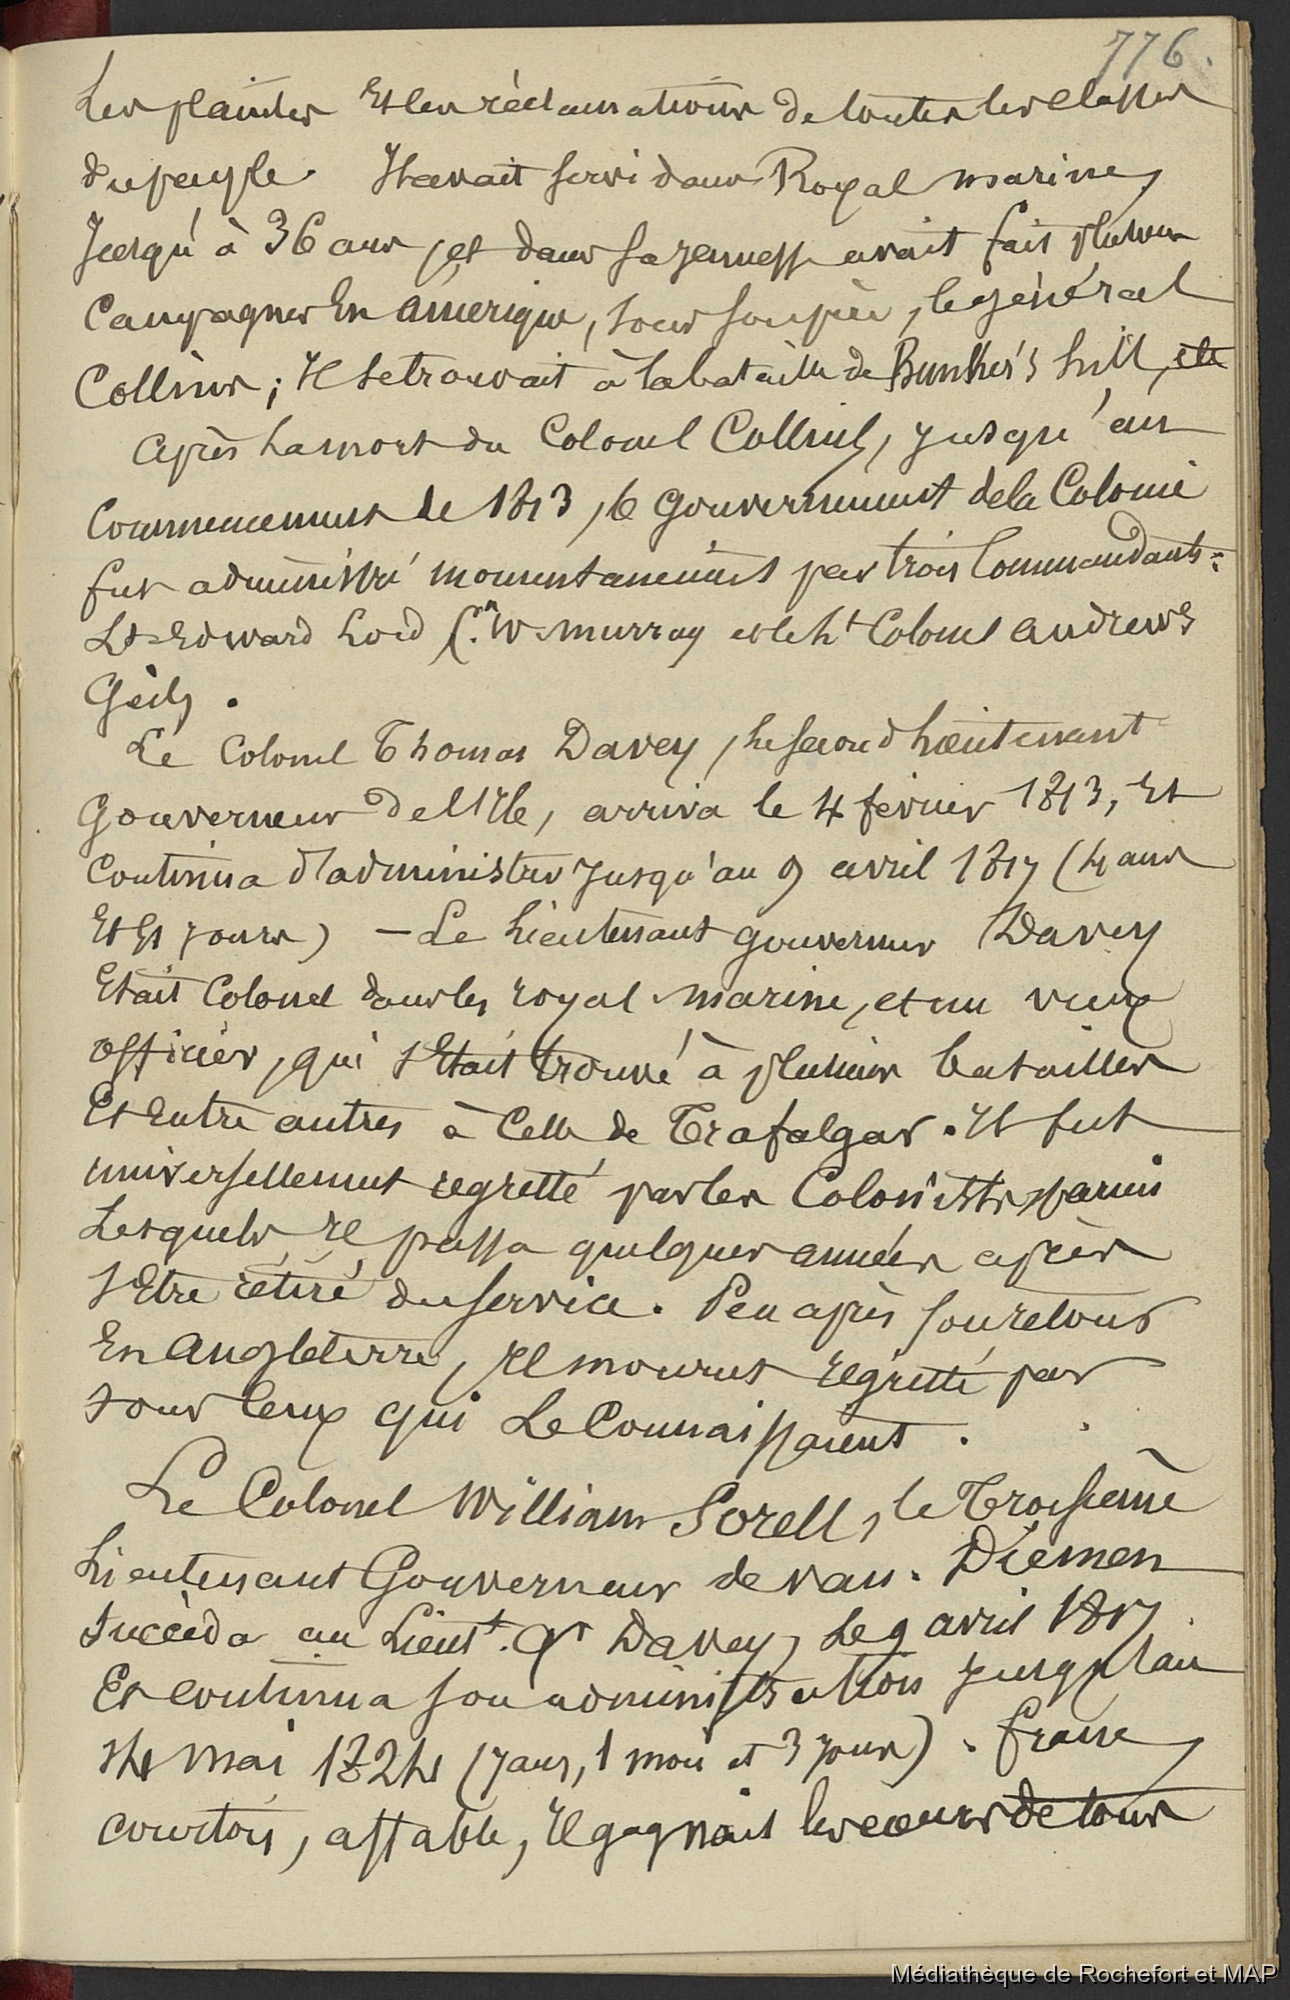 776.
Les plaintes et les réclamations de toutes les classes
du peuple. Il avait servi dans Royal marine,
Jusqu'à 36 ans, et dans sa jeunesse avait fait plusieurs
Campagnes En amérique, sous son père, le général
Collins; Il se trouvait à la bataille de Bunker's hill, etc
après la mort du Colonel Collins, jusqu'au
Commencement de 1813, le gouvernement de la Colonie
fut administré momentanément par trois Commandants:
Lt Edward Lord C.n W. Murray et le Lt Colonel andrews
Geils.
Le Colonel Thomas Davey, le second Lieutenant
Gouverneur de l'Ile, arriva le 4 février 1813, Et
Continua d'administrer jusqu'au 9 avril 1817 (4 ans
Et jours) – Le Lieutenant gouverneur Davey
Etait Colonel dans les royal marine, et un vieux
officier, qui s'Etait trouvé à plusieurs batailles
Et Entre autres à Celle de Trafalgar. Il fut
universellement regretté par les Colonists parmi
Lesquels Il passa quelques années après
s'Etre rétiré du service. Peu après son retour
En Angleterre, Il mourut regretté par
tous Ceux qui Le Connaissaient.
Le Colonel William Sorell, le Troisième
Lieutenant Gouverneur de van. Diemen
succèda au Lieut.t Gr Davey, Le 9 avril 1817
Et continua son administration jusqu'au
14 Mai 1824 (7 ans, 1 mois et 3 jours). franc,
courtois, affable, Il gagnait les coeurs de tous
Médiathèque de Rochefort et MAP